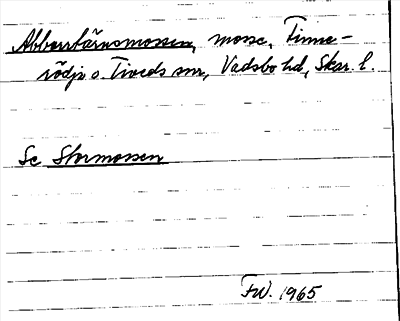 Abborrtärnsmossen, mosse, Finne-
rödja o. Tiveds snr, Vadsbo hd, Skar. l.
Se Stormossen
FW. 1965